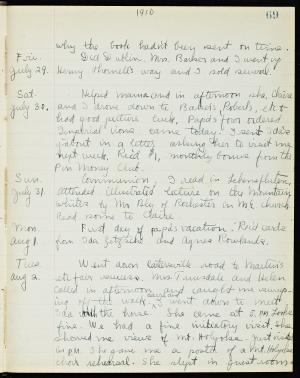 1910
69
why the book hadn't been sent on time.
Fri. Did Dublin. Mrs. Barber and I went up
July 29. Henry Thornell's way and I sold several.
Sat. Helped mama and in afternoon she, Claire
July 30. and I drove down to Baird's, Roberts, etc &
had good picture luck. Papa's four ordered
came today. I sent Ida's
in a letter asking her to visit me
next week. Rec'd $1, monthly bonus from the
Pin Money Club.
Sun. Communion. I read in
July 31. attended illustrated lecture on the Mountain
Whites by Mrs. of Rochester in M. church.
Read some to Claire.
Mon. First day of papa's vacation. Rec'd cards
Aug 1. from Ida and Agnes Rowlands.
Tues. Went down road to Martin's
Aug 2. success. Mrs. Truesdale and Helen
called in afternoon and caught me
the Claire and I went down to meet
Ida with the horse. She came at 5 P.M. Looks
fine. We had a fine visit. She
showed me views of Mt. Holyoke.
P.M. She gave me a of a Mt. Holyoke
choir rehearsal. She slept in guest room